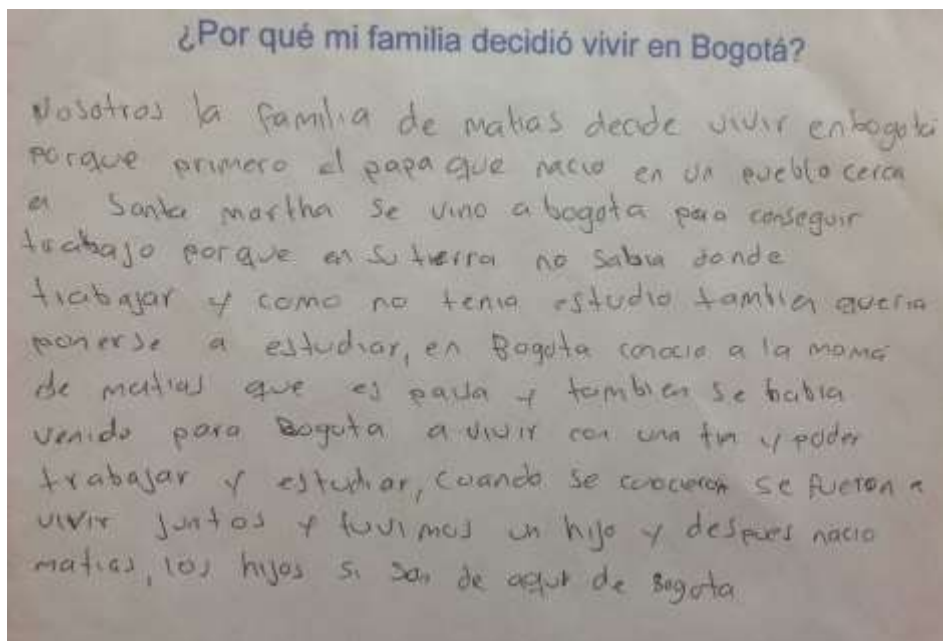 ¿Por qué mi familia decidió vivir en Bogotá?
Nosotros la familia de matias decide vivir enbogota
porque primero el papa que nacio en un pueblo cerca
en Santa martha se vino a bogota para conseguir
trabajo porque en su tierra no sabia donde
trabajar y como no tenia estudio tambien queria
ponerse a estudiar, en Bogota conocio a la mamá
de matias que es paisa y tambien se habia
venido para Bogota a vivir con una tia y poder
trabajar y estudiar, cuando se conocieron se fueron a
vivir juntos y tuvimos un hijo y despues nacio
matias, los hijos si son de aqui de Bogota